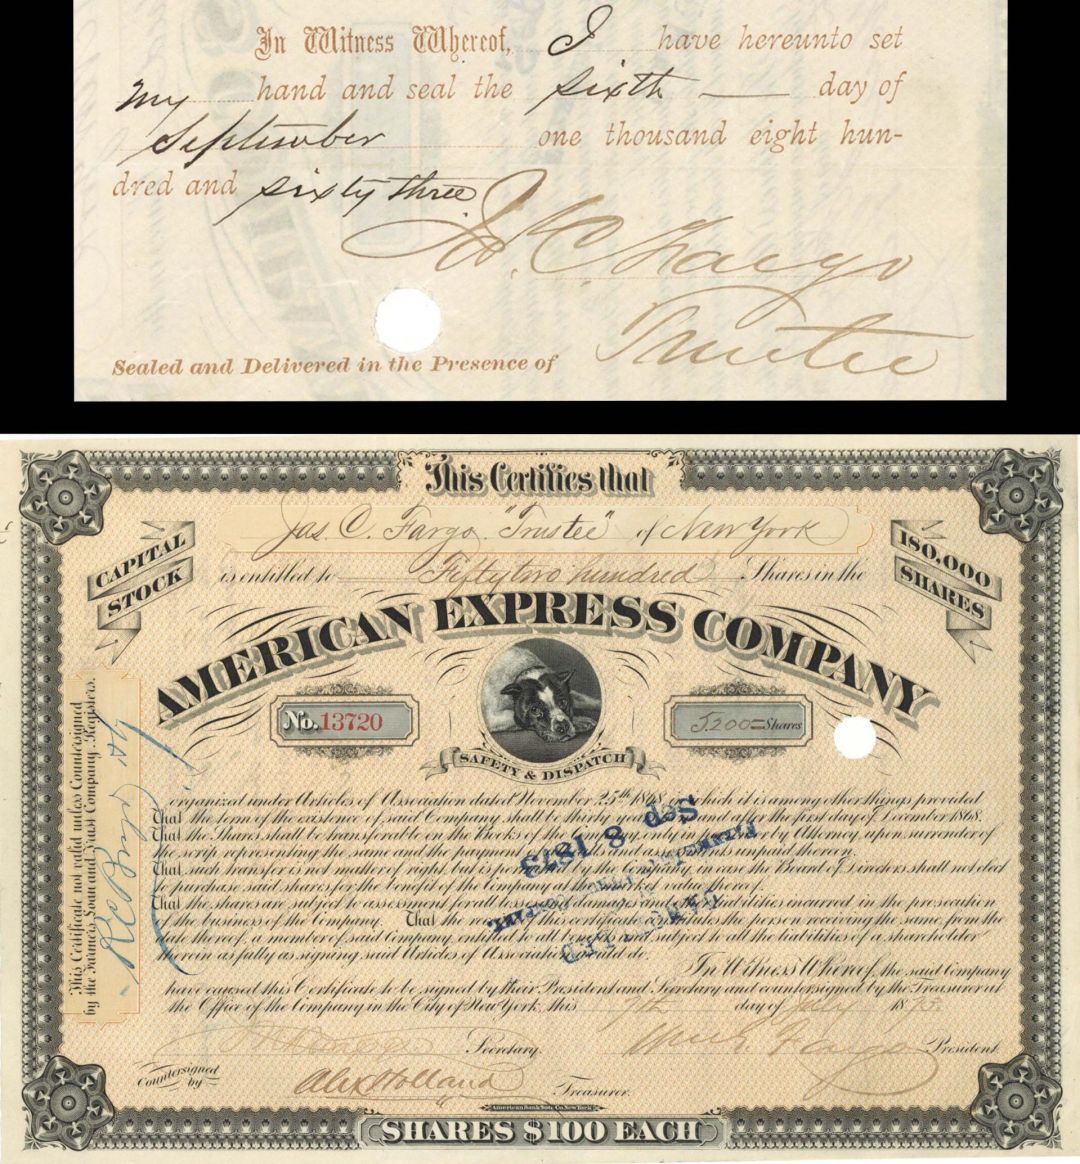 In Witness Whereof, I have hereunto set
my hand and seal the sixth day of
September one thousand eight hun-
dred and sixty three
Jas. C. Fargo
Trustee
Sealed and Delivered in the Presence of
This Certifies that
Jas. C. Fargo "Trustee" of New York
CAPITAL STOCK
180,000 SHARES
is entitled to Fifty two hundred Shares in the
AMERICAN EXPRESS COMPANY
No. 13720
5200 Shares
SAFETY & DISPATCH
This Certificate not valid unless Countersigned
by the Farmers Loan and Trust Company, Registers.
organized under Articles of Association dated November 25th 1868, which it is among other things provided
That the term of the existence of said Company shall be thirty years from and after the first day of December 1868.
That the Shares shall be transferable on the Books of the Company, only in person or by Attorney, upon surrender of
the scrip representing the same and the payment of all and assessments unpaid thereon.
That such transfer is not matter of right, but is permitted by the company, in case the Board of Directors shall not elect
to purchase said shares for the benefit of the Company at the market value thereof.
That the shares are subject to assessment for all losses, damages and liabilities incurred in the prosecution
of the business of the Company. That the receipt of this certificate constitutes the person receiving the same, from the
date thereof, a member of said Company, entitled to all benefits and subject to all the liabilities of a shareholder
therein as fully as signing said Articles of Association would do.
In Witness Whereof, the said Company
have caused this Certificate to be signed by their President and Secretary and countersigned by the Treasurer at
the Office of the Company in the City of New York, this 7th day of July 1873.
SEP 8 1873
CANCELLED
Secretary.
Wm. G. Fargo President
Countersigned by Alex Holland Treasurer.
American Bank Note Co. New York
SHARES $100 EACH